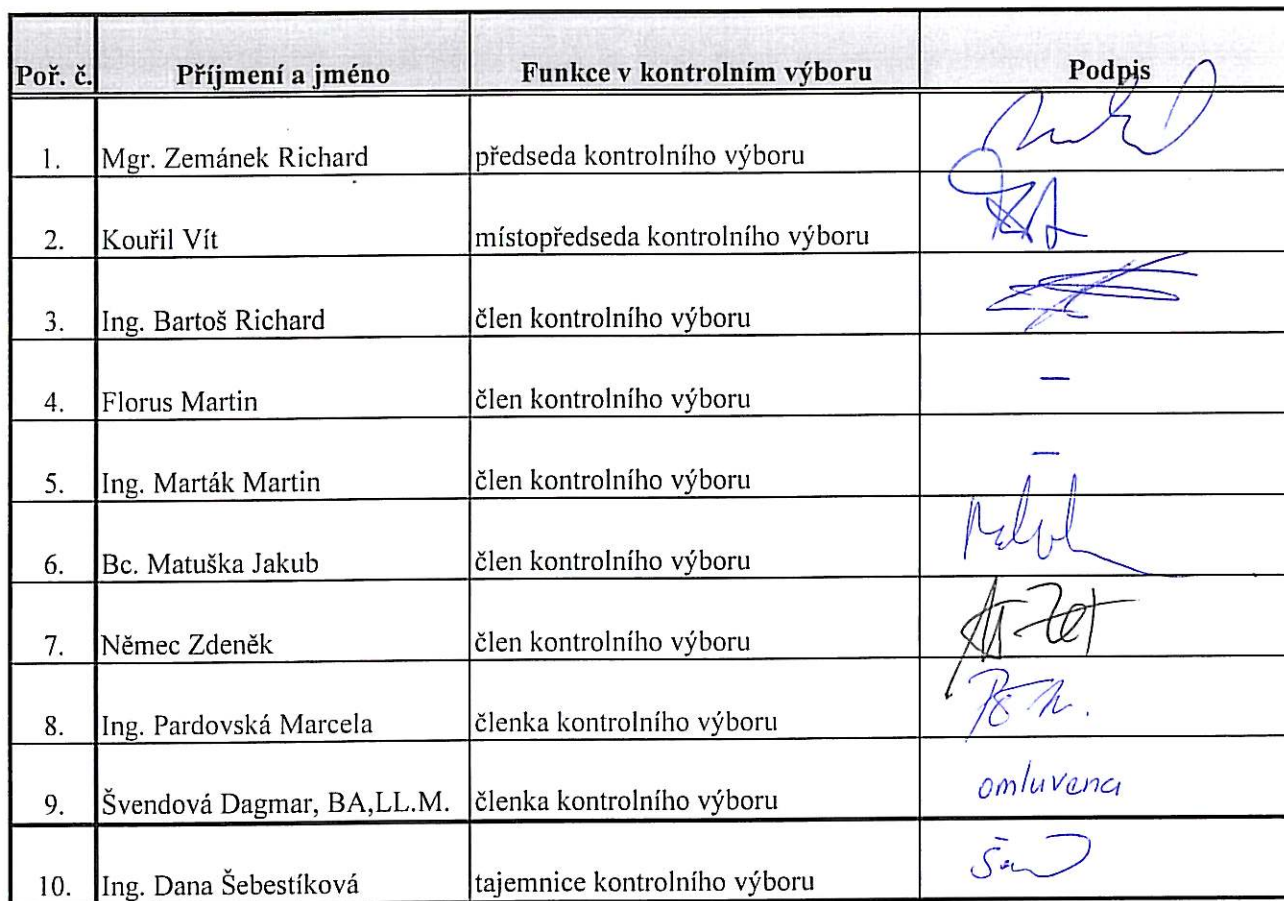 Poř. č. Příjmení a jméno Funkce v kontrolním výboru Podpis
1. Mgr. Zemánek Richard předseda kontrolního výboru
2. Kouřil Vít místopředseda kontrolního výboru
3. Ing. Bartoš Richard člen kontrolního výboru
4. Florus Martin člen kontrolního výboru –
5. Ing. Marták Martin člen kontrolního výboru –
6. Bc. Matuška Jakub člen kontrolního výboru
7. Němec Zdeněk člen kontrolního výboru
8. Ing. Pardovská Marcela členka kontrolního výboru
9. Švendová Dagmar, BA,LL.M. členka kontrolního výboru omluvena
10. Ing. Dana Šebestíková tajemnice kontrolního výboru